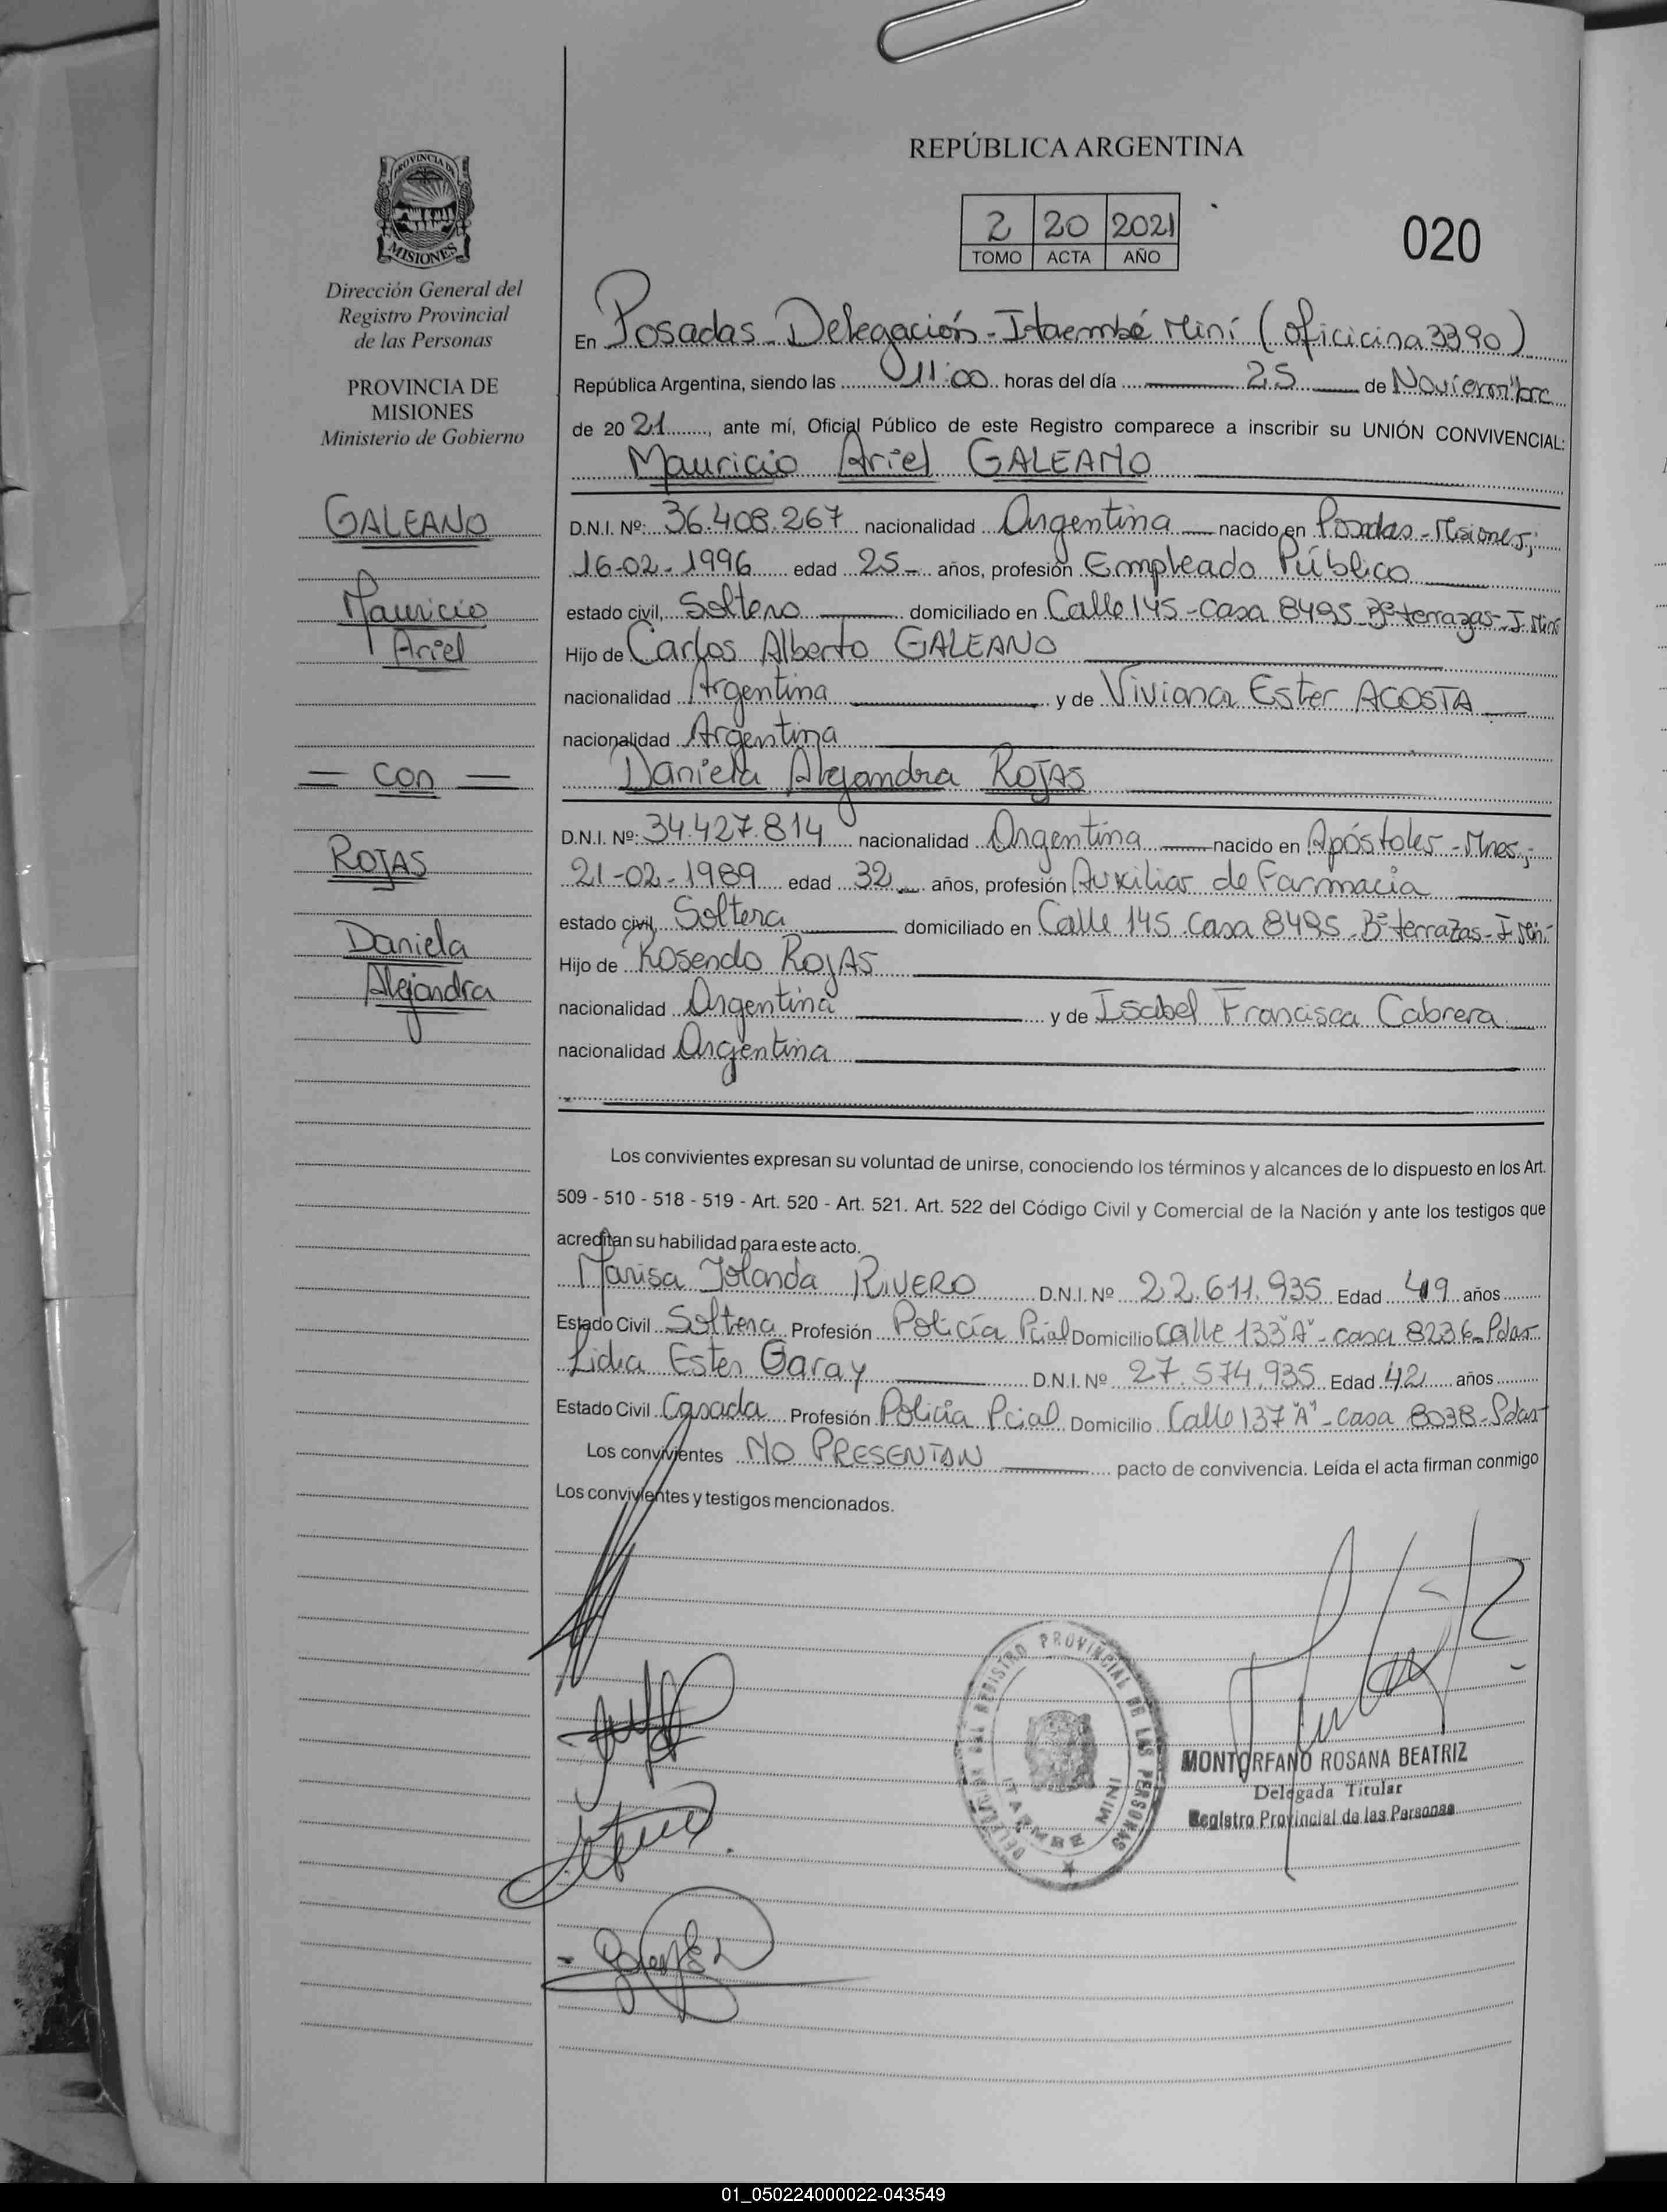 REPÚBLICA ARGENTINA
2 20 2021
TOMO ACTA AÑO
020
PROVINCIA DE
MISIONES
Dirección General del
Registro Provincial
de las Personas
PROVINCIA DE
MISIONES
Ministerio de Gobierno
GALEANO
Mauricio
Ariel
= con =
ROJAS
Daniela
Alejandra
En Posadas - Delegación - Itaembé Miní (oficicina 3390)
República Argentina, siendo las 11:00 horas del día 25 de Noviembre
de 2021, ante mí, Oficial Público de este Registro comparece a inscribir su UNIÓN CONVIVENCIAL:
Mauricio Ariel GALEANO
D.N.I. Nº: 36.408.267 nacionalidad Argentina nacido en Posadas - Misiones;
16-02-1996 edad 25 años, profesión Empleado Público
estado civil, Soltero domiciliado en Calle 145 - casa 8495 Bº terrazas - I. Miní
Hijo de Carlos Alberto GALEANO
nacionalidad Argentina y de Viviana Ester ACOSTA
nacionalidad Argentina
Daniela Alejandra ROJAS
D.N.I. Nº: 34.427.814 nacionalidad Argentina nacido en Apóstoles - Mnes;
21-02-1989 edad 32 años, profesión Auxiliar de Farmacia
estado civil, Soltera domiciliado en Calle 145 casa 8495 - Bº terrazas - I. Min.
Hijo de Rosendo ROJAS
nacionalidad Argentina y de Isabel Francisca Cabrera
nacionalidad Argentina
Los convivientes expresan su voluntad de unirse, conociendo los términos y alcances de lo dispuesto en los Art.
509 - 510 - 518 - 519 - Art. 520 - Art. 521. Art. 522 del Código Civil y Comercial de la Nación y ante los testigos que
acreditan su habilidad para este acto.
Marisa Iolanda RIVERO D.N.I. Nº 22.611.935 Edad 49 años
Estado Civil Soltera Profesión Policía Pcial Domicilio Calle 133 "A" - casa 8236 - Pdas
Lidia Ester Garay D.N.I. Nº 27.574.935 Edad 42 años
Estado Civil Casada Profesión Policía Pcial Domicilio Calle 137 "A" - casa 8038 - Pdas
Los convivientes NO PRESENTAN pacto de convivencia. Leída el acta firman conmigo
Los convivientes y testigos mencionados.
REGISTRO PROVINCIAL DE LAS PERSONAS
ITAEMBE MINI
MONTORFANO ROSANA BEATRIZ
Delegada Titular
Registro Provincial de las Personas
01_050224000022-043549